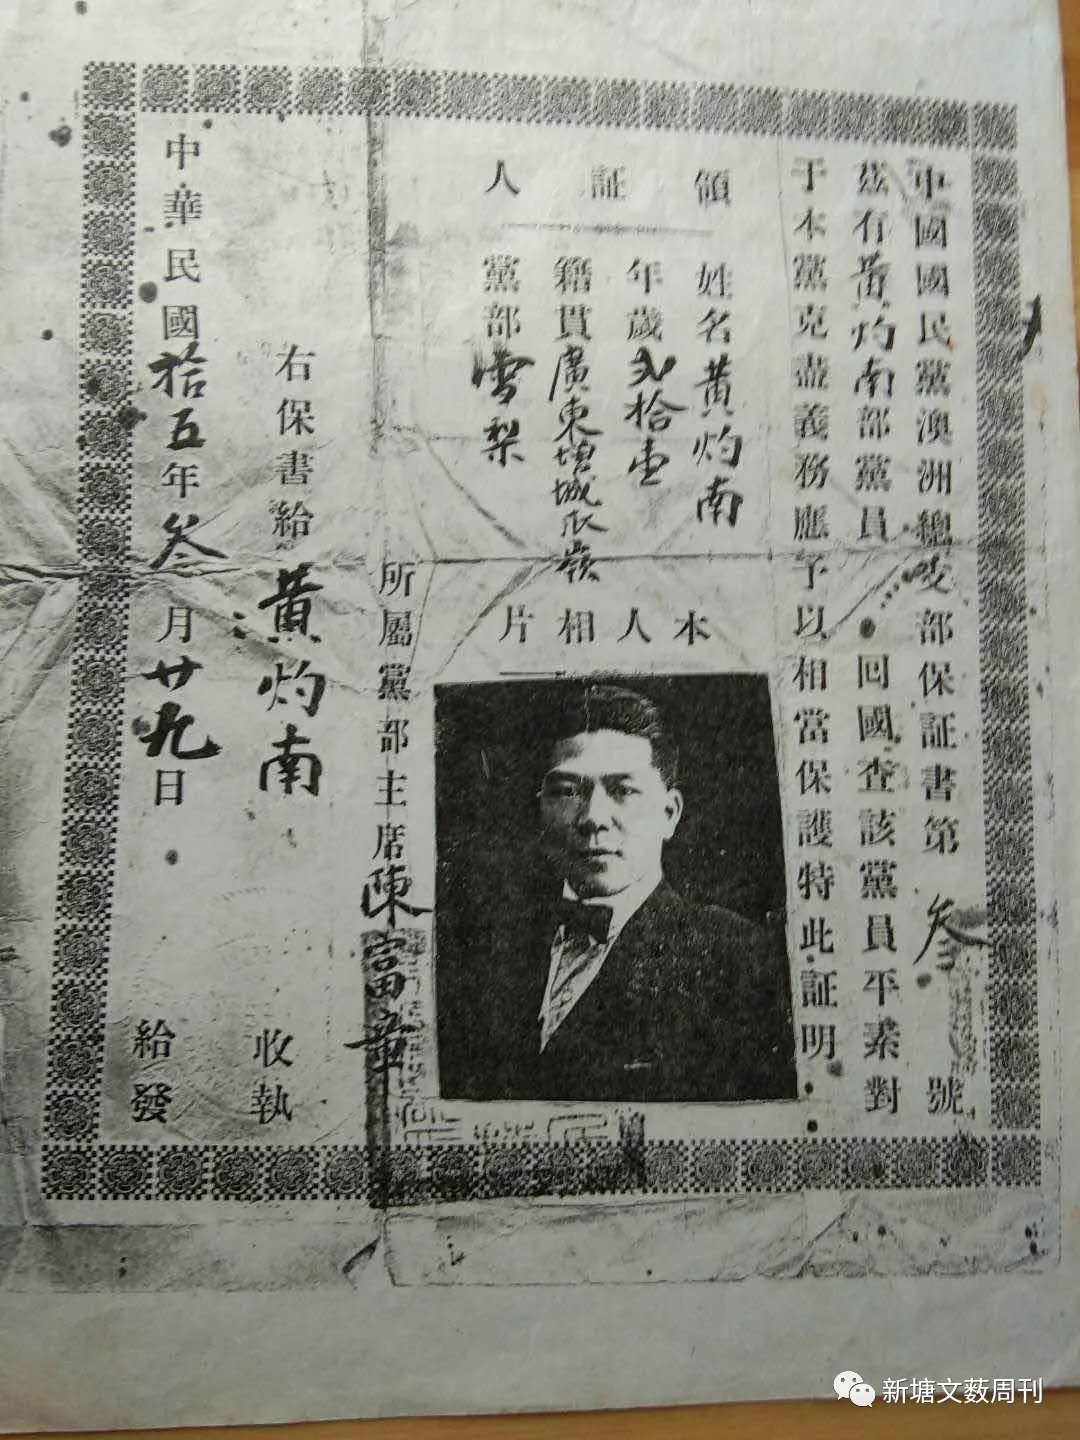 中國國民黨澳洲總支部保証書第叁號
茲有黃灼南部黨員回國查該黨員平素對
于本黨克盡義務應予以相當保護特此証明
領証人
姓名黃灼南
年歲弍拾壹
籍貫廣東增城瓜嶺
黨部雪梨
本人相片
所屬黨部主席陳富章
右保書給黃灼南收執
中華民國拾五年叁月廿九日給發
新塘文薮周刊